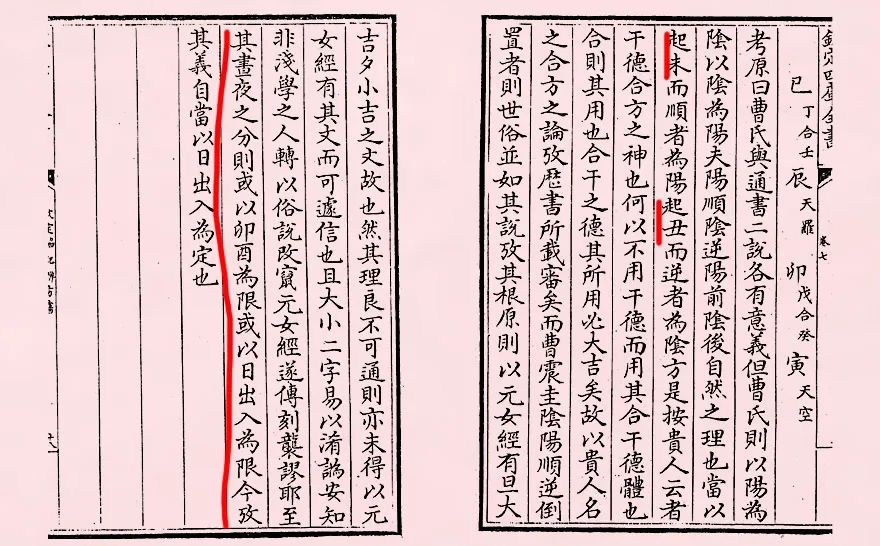 欽定四庫全書
卷七
巳丁合壬辰天羅卯戊合癸寅天空
考原曰曹氏與通書二說各有意義但曹氏則以陽為
陰以陰為陽夫陽順陰逆陽前陰後自然之理也當以
起未而順者為陽起丑而逆者為陰方是按貴人云者
干德合方之神也何以不用干德而用其合干德體也
合則其用也合干之德其所用必大吉矣故以貴人名
之合方之論攷歴書所載審矣而曹震圭陰陽順逆倒
置者則世俗並如其說攷其根原則以元女經有旦大
吉夕小吉之文故也然其理良不可通則亦未得以元
女經有其文而可遽信也且大小二字易以淆譌安知
非淺學之人轉以俗說改竄元女經遂傳刻襲謬耶至
其晝夜之分則或以卯酉為限或以日出入為限今攷
其義自當以日出入為定也